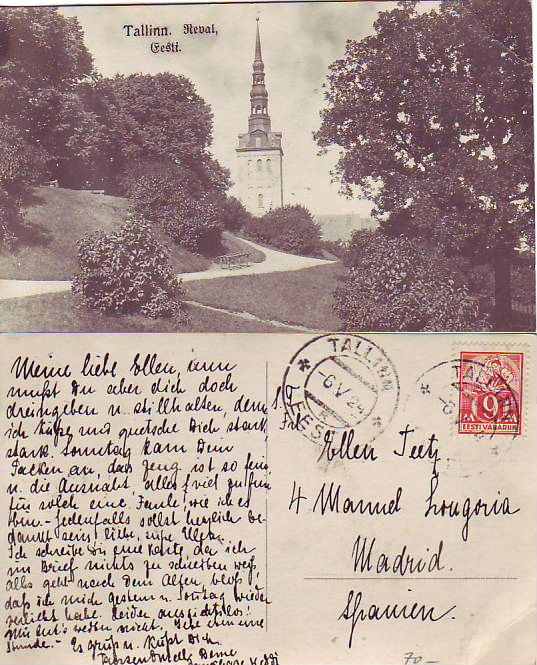 Tallinn. Reval,
Eesti.
Meine liebe Ellen, nun
mußt Du aber dich doch
dreingeben u. stillhalten, denn
ich küße und quetsche Dich stark,
stark. Sonntag kam Dein
Packen an, das Zeug ist so fein
u. die Auswahl, alles viel zu fein
für solch eine Faule, wie ich es
bin. - Jedenfalls sollst herzlich be-
dankt sein, liebe, süße Ellen.
Ich schreibe Dir eine Karte, da ich
im Brief nichts zu schreiben weiß,
alles geht nach dem Alten, bloß,
daß ich mich gestern u. Sonntag wieder
verliebt habe. Leider aussichtslos!
Mir hat's weiter nicht.
Stunde. - Es grüßt u. küßt Dich
Deine
TALLINN
-6 V 24
EESTI
TALLINN
9
EESTI VABARIIK
Ellen Teetz
4 Manuel Longoria
Madrid.
Spanien.
70-